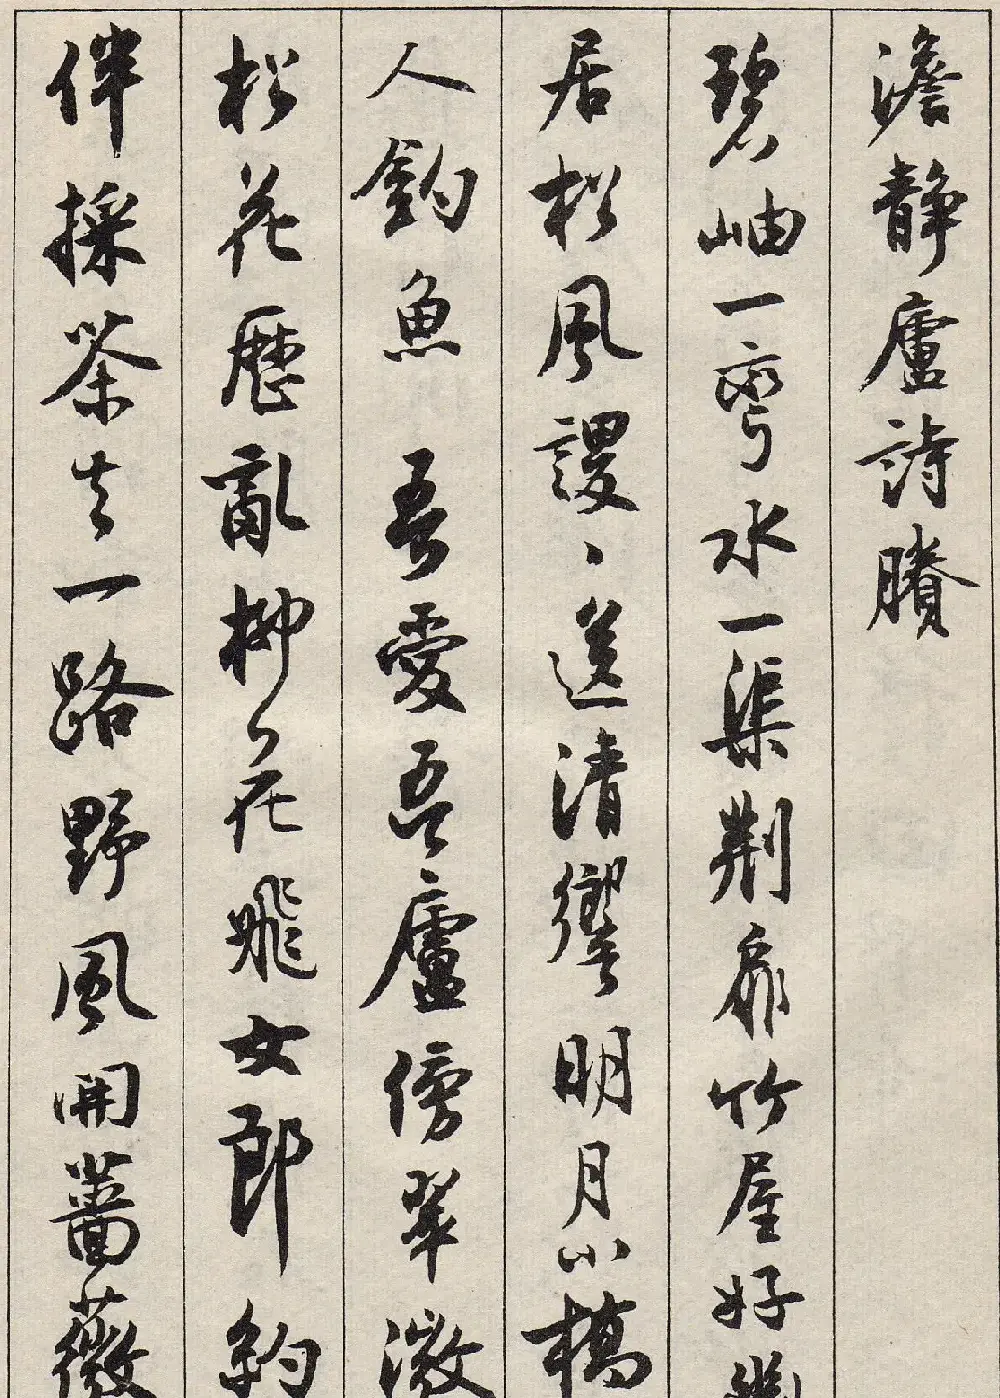 澹静廬詩賸
碧岫一彎水一渠荆扉竹屋好幽
居松風謖、送清響明月小橋
人釣魚 吾愛吾廬傍翠微
松花歴亂柳花飛女郎約
伴採茶去一路野風開薔薇